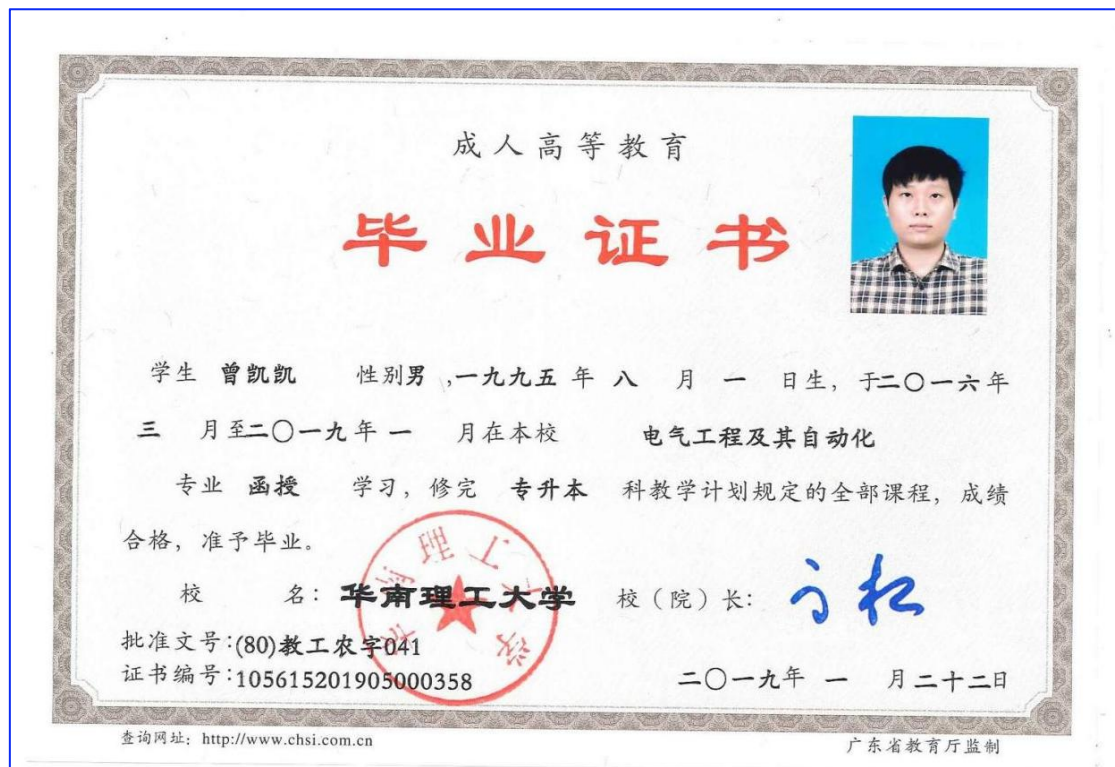 成人高等教育
毕业证书
学生 曾凯凯 性别男,一九九五年 八 月 一 日生，于二〇一六年
三 月至二〇一九年 一 月在本校 电气工程及其自动化
专业 函授 学习，修完 专升本 科教学计划规定的全部课程，成绩
合格，准予毕业。
校 名：华南理工大学 校（院）长：
华南理工大学
批准文号：(80)教工农字041
证书编号：105615201905000358 二〇一九年 一 月二十二日
查询网址：http://www.chsi.com.cn 广东省教育厅监制